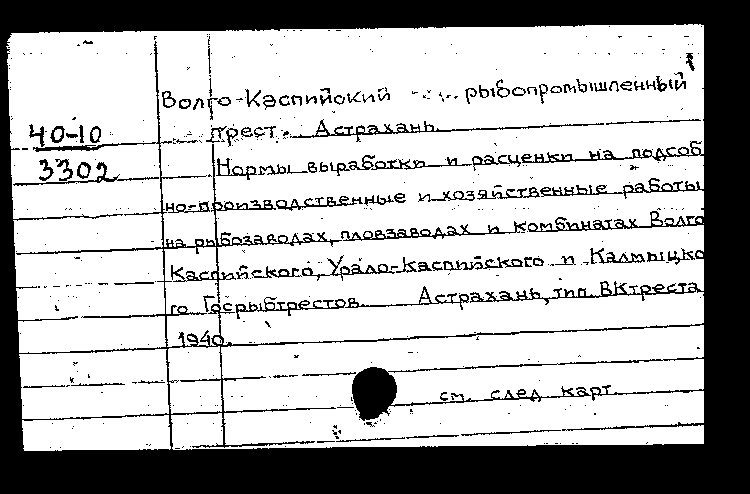 Волго-Каспийский рыбопромышленный
40-10
трест. Астрахань.
3302
Нормы выработки и расценки на подсоб
но-производственные и хозяйственные работы
на рыбозаводах, пловзаводах и комбинатах Волго
Каспийского, Урало-Каспийского и Калмыцко
го Госрыбтрестов. Астрахань, тип. ВКтреста
1940.
см. след карт.